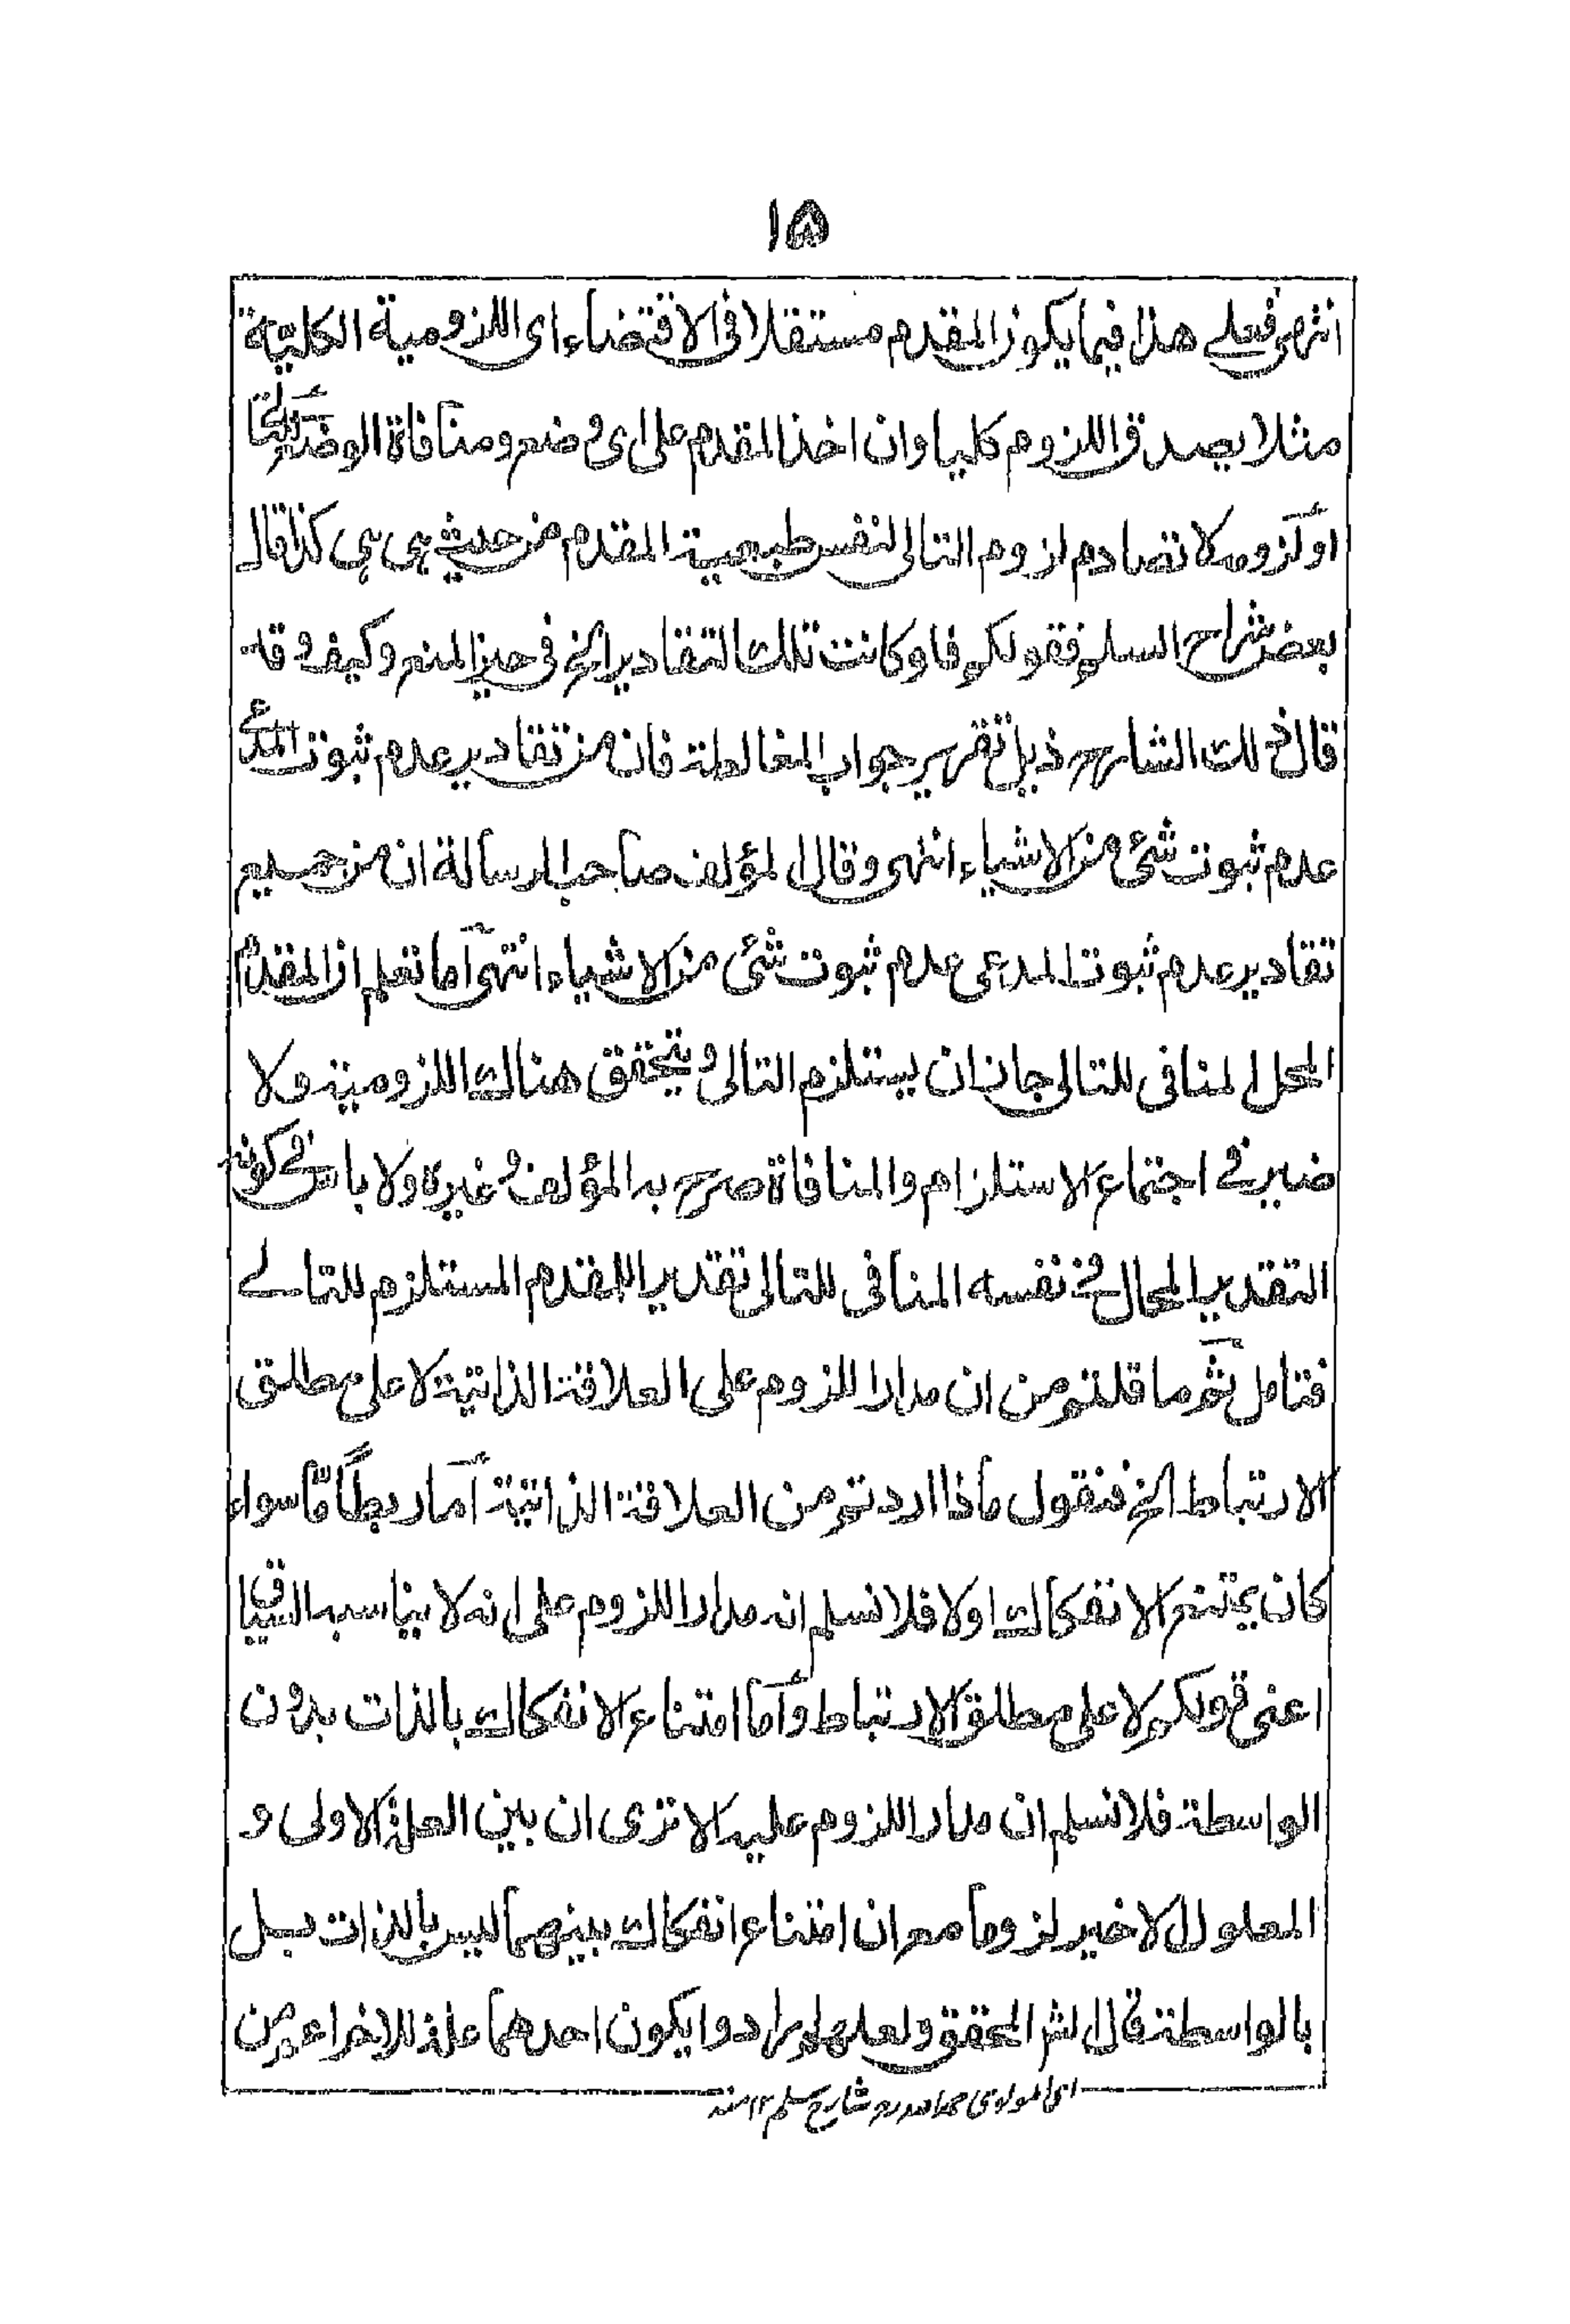 ١٥
انتهى فعلى هذا فيما يكون المقدم مستقلا فى الاقتضاء اى اللزومية الكلية
مثلا يصدق اللزوم كليا وان اخذ المقدم على اى وضع ومنافاة الوضع للتالى
او لزومه لا تصادم لزوم التالى لنفس طبيعية المقدم من حيث هى هى كذا قال
بعض شراح السلم فقولكم فلو كانت تلك التقادير الخ فى حيز المنع وكيف وقد
قال ذلك الشارح ذيل تقرير جواب المغالطة فانه من تقادير عدم ثبوت المدعى
عدم ثبوت شئ من الاشياء انتهى وقال المؤلف صاحب الرسالة ان من جميع
تقادير عدم ثبوت المدعى عدم ثبوت شئ من الاشياء انتهى اما تعلم ان المقدم
المحال المنافى للتالى جاز ان يستلزم التالى ويتحقق هناك اللزومية ولا
ضير فى اجتماع الاستلزام والمنافاة صرح به المؤلف وغيره ولا باس فى كون
التقدير المحال فى نفسه المنافى للتالى تقدير المقدم المستلزم للتالى
فتامل ثم ما قلتم من ان مدار اللزوم على العلاقة الذاتية لا على مطلق
الارتباط الخ فنقول ماذا اردتم من العلاقة الذاتية اما ربطا ما سواء
كان يمتنع الانفكاك اولا فلا نسلم انه مدار اللزوم على انه لا يناسبه السياق
اعنى قولكم لا على مطلق الارتباط واما امتناع الانفكاك بالذات بدون
الواسطة فلا نسلم ان مدار اللزوم عليه الا ترى ان بين العلة الاولى و
المعلول الاخير لزوما مع ان امتناع انفكاك بينهما ليس بالذات بل
بالواسطة قال الش المحقق ولعلهم لم يرادوا بكون احدهما علة للاخر اعم من
اى المولوى حمد الله شارح سلم ١٢ منه